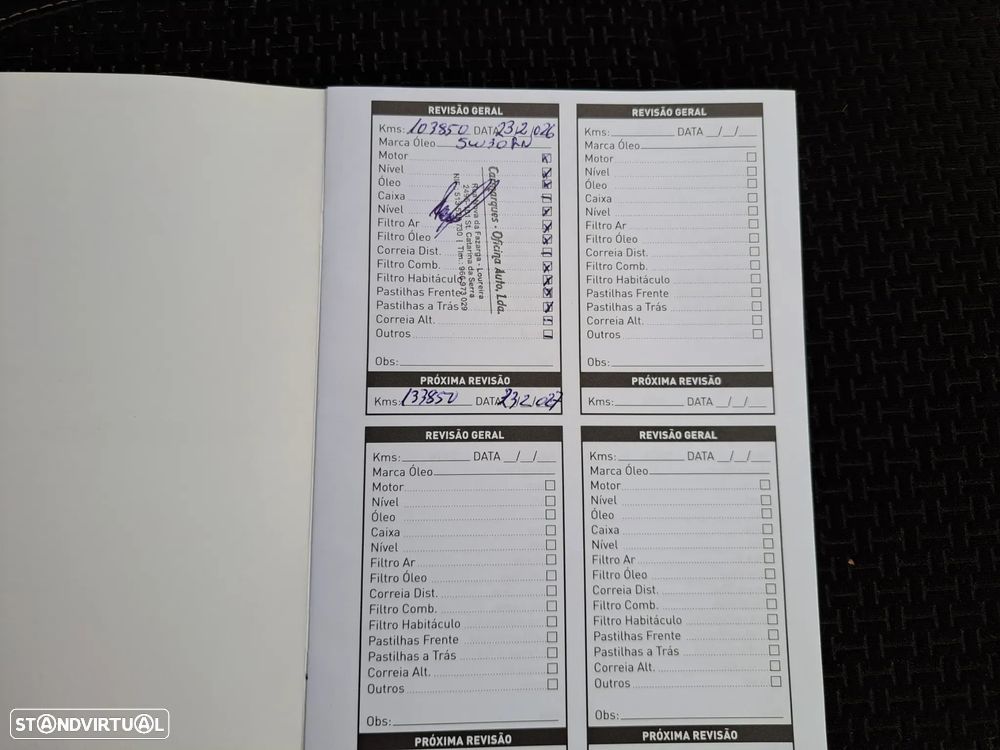 REVISÃO GERAL
Kms: 103850 DATA 23/2/026
Marca Óleo 5W30
Motor
Nível
Óleo
Caixa
Nível
Filtro Ar
Filtro Óleo
Correia Dist.
Filtro Comb.
Filtro Habitáculo
Pastilhas Frente
Pastilhas a Trás
Correia Alt.
Outros
Obs:
PRÓXIMA REVISÃO
Kms: 133850 DATA 23/2/027
- Oficina Auto, Lda.
da Fazarga - Loureira
St. Catarina da Serra
Tlm.: 966 973 029
REVISÃO GERAL
Kms: DATA __/__/__
Marca Óleo
Motor
Nível
Óleo
Caixa
Nível
Filtro Ar
Filtro Óleo
Correia Dist.
Filtro Comb.
Filtro Habitáculo
Pastilhas Frente
Pastilhas a Trás
Correia Alt.
Outros
Obs:
PRÓXIMA REVISÃO
Kms: DATA __/__/__
REVISÃO GERAL
Kms: DATA __/__/__
Marca Óleo
Motor
Nível
Óleo
Caixa
Nível
Filtro Ar
Filtro Óleo
Correia Dist.
Filtro Comb.
Filtro Habitáculo
Pastilhas Frente
Pastilhas a Trás
Correia Alt.
Outros
Obs:
PRÓXIMA REVISÃO
REVISÃO GERAL
Kms: DATA __/__/__
Marca Óleo
Motor
Nível
Óleo
Caixa
Nível
Filtro Ar
Filtro Óleo
Correia Dist.
Filtro Comb.
Filtro Habitáculo
Pastilhas Frente
Pastilhas a Trás
Correia Alt.
Outros
Obs:
PRÓXIMA REVISÃO
STANDVIRTUAL